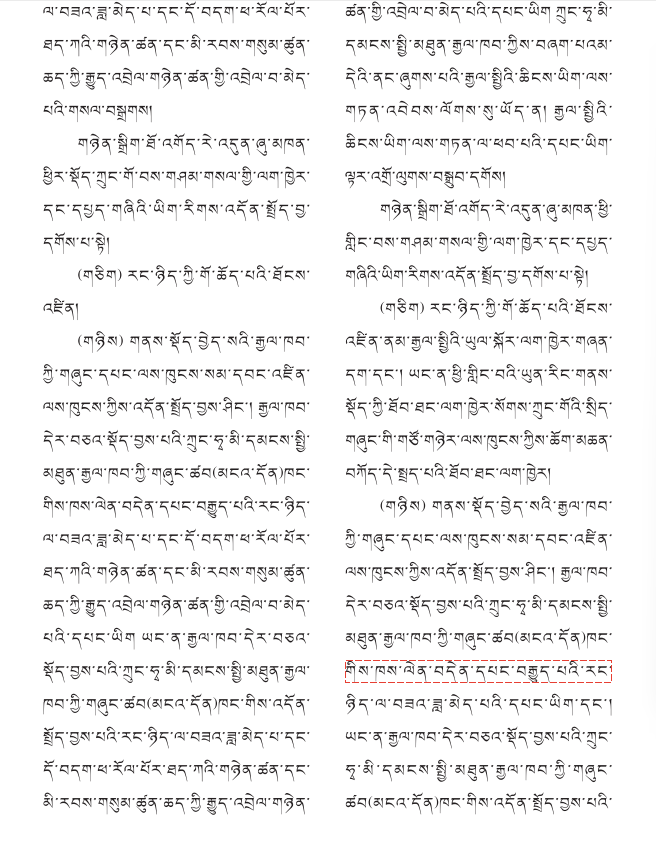 ལ་བཟའ་ཟླ་མེད་པ་དང་དོ་བདག་ཕ་རོལ་པོར་
ཐད་ཀའི་གཉེན་ཚན་དང་མི་རབས་གསུམ་ཚུན་
ཆད་ཀྱི་རྒྱུད་འབྲེལ་གཉེན་ཚན་གྱི་འབྲེལ་བ་མེད་
པའི་གསལ་བསྒྲགས།
གཉེན་སྒྲིག་ཐོ་འགོད་རེ་འདུན་ཞུ་མཁན་
ཕྱིར་སྡོད་ཀྲུང་གོ་བས་གཤམ་གསལ་གྱི་ལག་ཁྱེར་
དང་དཔྱད་གཞིའི་ཡིག་རིགས་འདོན་སྤྲོད་བྱ་
དགོས་པ་སྟེ།
(གཅིག) རང་ཉིད་ཀྱི་གོ་ཆོད་པའི་ཐོངས་
འཛིན།
(གཉིས) གནས་སྡོད་བྱེད་སའི་རྒྱལ་ཁབ་
ཀྱི་གཞུང་དཔང་ལས་ཁུངས་སམ་དབང་འཛིན་
ལས་ཁུངས་ཀྱིས་འདོན་སྤྲོད་བྱས་ཤིང་། རྒྱལ་ཁབ་
དེར་བཅའ་སྡོད་བྱས་པའི་ཀྲུང་ཧྭ་མི་དམངས་སྤྱི་
མཐུན་རྒྱལ་ཁབ་ཀྱི་གཞུང་ཚབ(མངའ་དོན)ཁང་
གིས་ཁས་ལེན་བདེན་དཔང་བརྒྱུད་པའི་རང་ཉིད་
ལ་བཟའ་ཟླ་མེད་པ་དང་དོ་བདག་ཕ་རོལ་པོར་
ཐད་ཀའི་གཉེན་ཚན་དང་མི་རབས་གསུམ་ཚུན་
ཆད་ཀྱི་རྒྱུད་འབྲེལ་གཉེན་ཚན་གྱི་འབྲེལ་བ་མེད་
པའི་དཔང་ཡིག ཡང་ན་རྒྱལ་ཁབ་དེར་བཅའ་
སྡོད་བྱས་པའི་ཀྲུང་ཧྭ་མི་དམངས་སྤྱི་མཐུན་རྒྱལ་
ཁབ་ཀྱི་གཞུང་ཚབ(མངའ་དོན)ཁང་གིས་འདོན་
སྤྲོད་བྱས་པའི་རང་ཉིད་ལ་བཟའ་ཟླ་མེད་པ་དང་
དོ་བདག་ཕ་རོལ་པོར་ཐད་ཀའི་གཉེན་ཚན་དང་
མི་རབས་གསུམ་ཚུན་ཆད་ཀྱི་རྒྱུད་འབྲེལ་གཉེན་
ཚན་གྱི་འབྲེལ་བ་མེད་པའི་དཔང་ཡིག ཀྲུང་ཧྭ་མི་
དམངས་སྤྱི་མཐུན་རྒྱལ་ཁབ་ཀྱིས་བཞག་པའམ་
དེའི་ནང་ཞུགས་པའི་རྒྱལ་སྤྱིའི་ཆིངས་ཡིག་ལས་
གཏན་འབེབས་ལོགས་སུ་ཡོད་ན། རྒྱལ་སྤྱིའི་
ཆིངས་ཡིག་ལས་གཏན་ལ་ཕབ་པའི་དཔང་ཡིག་
ལྟར་འགྲོ་ལུགས་བསྒྲུབ་དགོས།
གཉེན་སྒྲིག་ཐོ་འགོད་རེ་འདུན་ཞུ་མཁན་ཕྱི་
གླིང་བས་གཤམ་གསལ་གྱི་ལག་ཁྱེར་དང་དཔྱད་
གཞིའི་ཡིག་རིགས་འདོན་སྤྲོད་བྱ་དགོས་པ་སྟེ།
(གཅིག) རང་ཉིད་ཀྱི་གོ་ཆོད་པའི་ཐོངས་
འཛིན་ནམ་རྒྱལ་སྤྱིའི་ཡུལ་སྐོར་ལག་ཁྱེར་གཞན་
དག་དང་། ཡང་ན་ཕྱི་གླིང་བའི་ཡུན་རིང་གནས་
སྡོད་ཀྱི་ཐོབ་ཐང་ལག་ཁྱེར་སོགས་ཀྲུང་གོའི་སྲིད་
གཞུང་གི་གཙོ་གཉེར་ལས་ཁུངས་ཀྱིས་ཆོག་མཆན་
བཀོད་དེ་སྤྲད་པའི་ཐོབ་ཐང་ལག་ཁྱེར།
(གཉིས) གནས་སྡོད་བྱེད་སའི་རྒྱལ་ཁབ་
ཀྱི་གཞུང་དཔང་ལས་ཁུངས་སམ་དབང་འཛིན་
ལས་ཁུངས་ཀྱིས་འདོན་སྤྲོད་བྱས་ཤིང་། རྒྱལ་ཁབ་
དེར་བཅའ་སྡོད་བྱས་པའི་ཀྲུང་ཧྭ་མི་དམངས་སྤྱི་
མཐུན་རྒྱལ་ཁབ་ཀྱི་གཞུང་ཚབ(མངའ་དོན)ཁང་
གིས་ཁས་ལེན་བདེན་དཔང་བརྒྱུད་པའི་རང་
ཉིད་ལ་བཟའ་ཟླ་མེད་པའི་དཔང་ཡིག་དང་།
ཡང་ན་རྒྱལ་ཁབ་དེར་བཅའ་སྡོད་བྱས་པའི་ཀྲུང་
ཧྭ་མི་དམངས་སྤྱི་མཐུན་རྒྱལ་ཁབ་ཀྱི་གཞུང་
ཚབ(མངའ་དོན)ཁང་གིས་འདོན་སྤྲོད་བྱས་པའི་